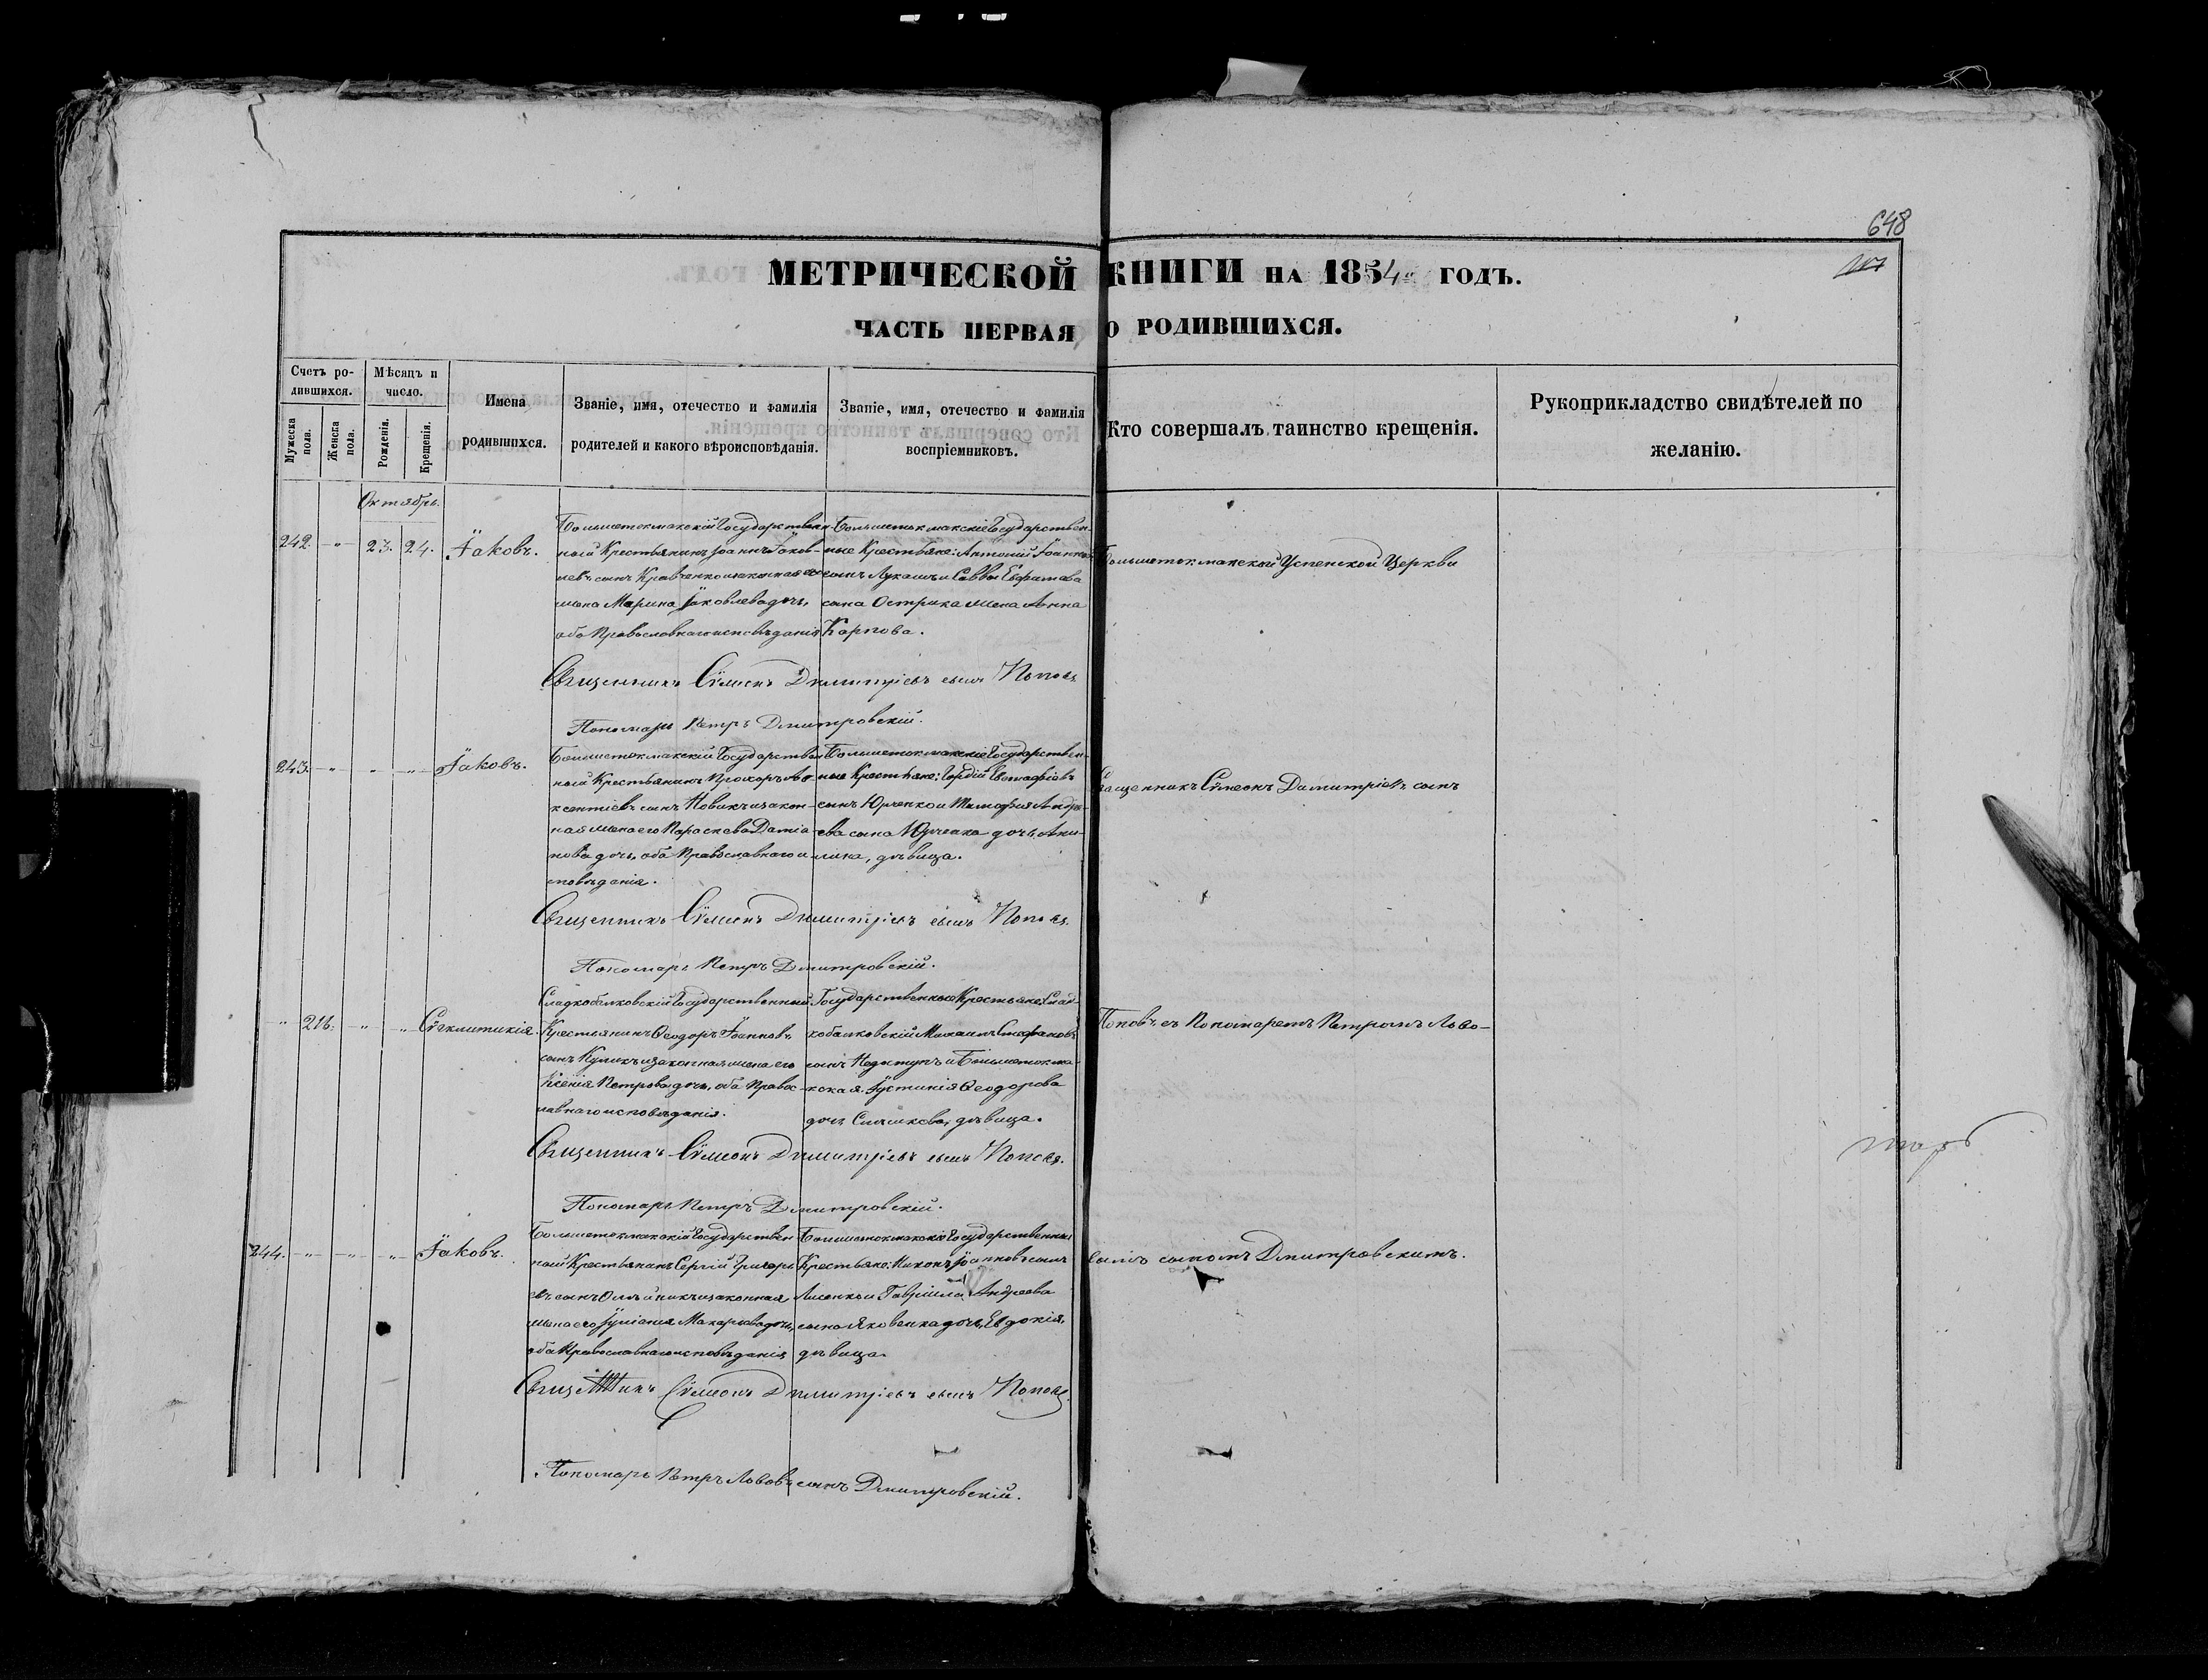 648
МЕТРИЧЕСКОЙ КНИГИ НА 1854 ГОДЪ.
ЧАСТЬ ПЕРВАЯ, О РОДИВШИХСЯ.
Счетъ ро-
дившихся.
Мужеска
пола.
Женска
пола.
Мѣсяцъ и
число.
Рожденія.
Крещенія.
Имена
родившихся.
Званіе, имя, отечество и фамилія
родителей и какого вѣроисповѣданія.
Званіе, имя, отечество и фамилія
воспріемниковъ.
Кто совершалъ таинство крещенія.
Рукоприкладство свидѣтелей по
желанію.
Октябрь.
242. -"- 23. 24. Іаковъ.
Большетокмакскій Государствен-
ный Крестьянинъ Іоаннъ Іаков-
левъ сынъ Кравченко и законная его
жена Марина Іаковлева дочь,
оба Православнаго исповѣданія
Большетокмакскіе Государствен-
ные Крестьяне: Антоній Іоанновъ
сынъ Лукашъ и Саввы Евфимова
сына Острика жена Анна
Карпова.
Священникъ Сѵмеонъ Димитріевъ сынъ Поповъ
Пономарь Петръ Дмитровскій.
243. -"- " -"- Іаковъ.
Большетокмакскій Государствен
ный Крестьянинъ Прохоръ Ав-
ксентіевъ сынъ Новикъ и закон-
ная жена его Параскева Даміа-
нова дочь, оба Православнаго и
сповѣданія.
Большетокмакскіе Государствен-
ные Крестьяне: Гордій Евстафіевъ
сынъ Юрченко и Тимофея Андре-
ева сына Юрченка дочь, Аки-
лина, дѣвица.
Священникъ Сѵмеонъ Димитріевъ сынъ Поповъ.
Пономарь Петръ Дмитровскій.
" 216. -"- -"- Сѵнклитикія.
Сладкобалковскій Государственный
Крестьянинъ Ѳеодоръ Іоанновъ
сынъ Куликъ и законная жена его
Ксенія Петрова дочь, оба Правос-
лавнаго исповѣданія.
Государственные Крестьяне: Слад-
кобалковскій Михаилъ Стефановъ
сынъ и Большетокма-
кская Іустинія Ѳеодорова
дочь дѣвица.
Священникъ Сѵмеонъ Димитріевъ сынъ Поповъ.
Пономарь Петръ Дмитровскій.
244. -"- -"- -"- Іаковъ.
Большетокмакскій Государствен
ный Крестьянинъ Сергій Григорь
евъ сынъ Олѣйникъ и законная
жена его Іуліанія Макарьева дочь,
оба Православнаго исповѣданія
Большетокмакскіе Государственные
Крестьяне: Никонъ Іоанновъ сынъ
Лисенко и Гавріила Андреева
сына Яковенка дочь, Евдокія,
дѣвица.
Священникъ Сѵмеонъ Димитріевъ сынъ Поповъ.
Пономарь Петръ Львовъ сынъ Дмитровскій.
Большетокмакской Успенской Церкви
Священникъ Сѵмеонъ Димитріевъ сынъ
Поповъ, съ Пономаремъ Петромъ Льво-
вымъ сыномъ Дмитровскимъ.